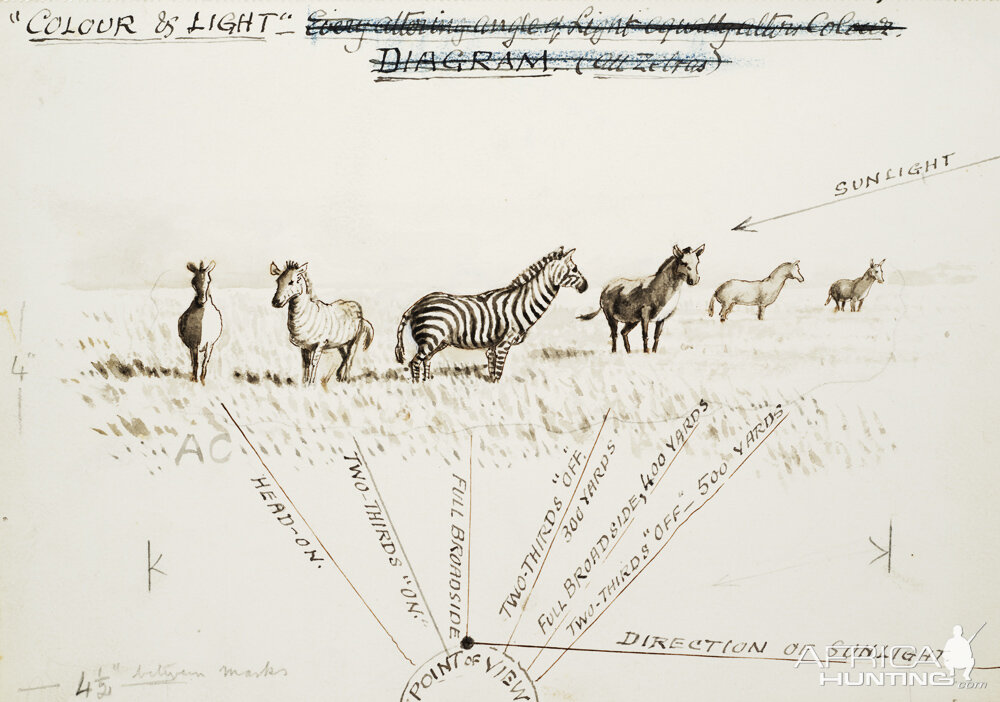 "COLOUR & LIGHT" Every altering angle of Light equally alters Colour.
DIAGRAM (All Zebras)
SUNLIGHT
4"
AC
HEAD-ON.
TWO-THIRDS "ON."
FULL BROADSIDE
TWO-THIRDS "OFF."
300 YARDS
FULL BROADSIDE, 400 YARDS
TWO-THIRDS "OFF" - 500 YARDS
K
K
DIRECTION OF SUNLIGHT
POINT OF VIEW
4 1/2" between marks
AFRICA
HUNTING.com